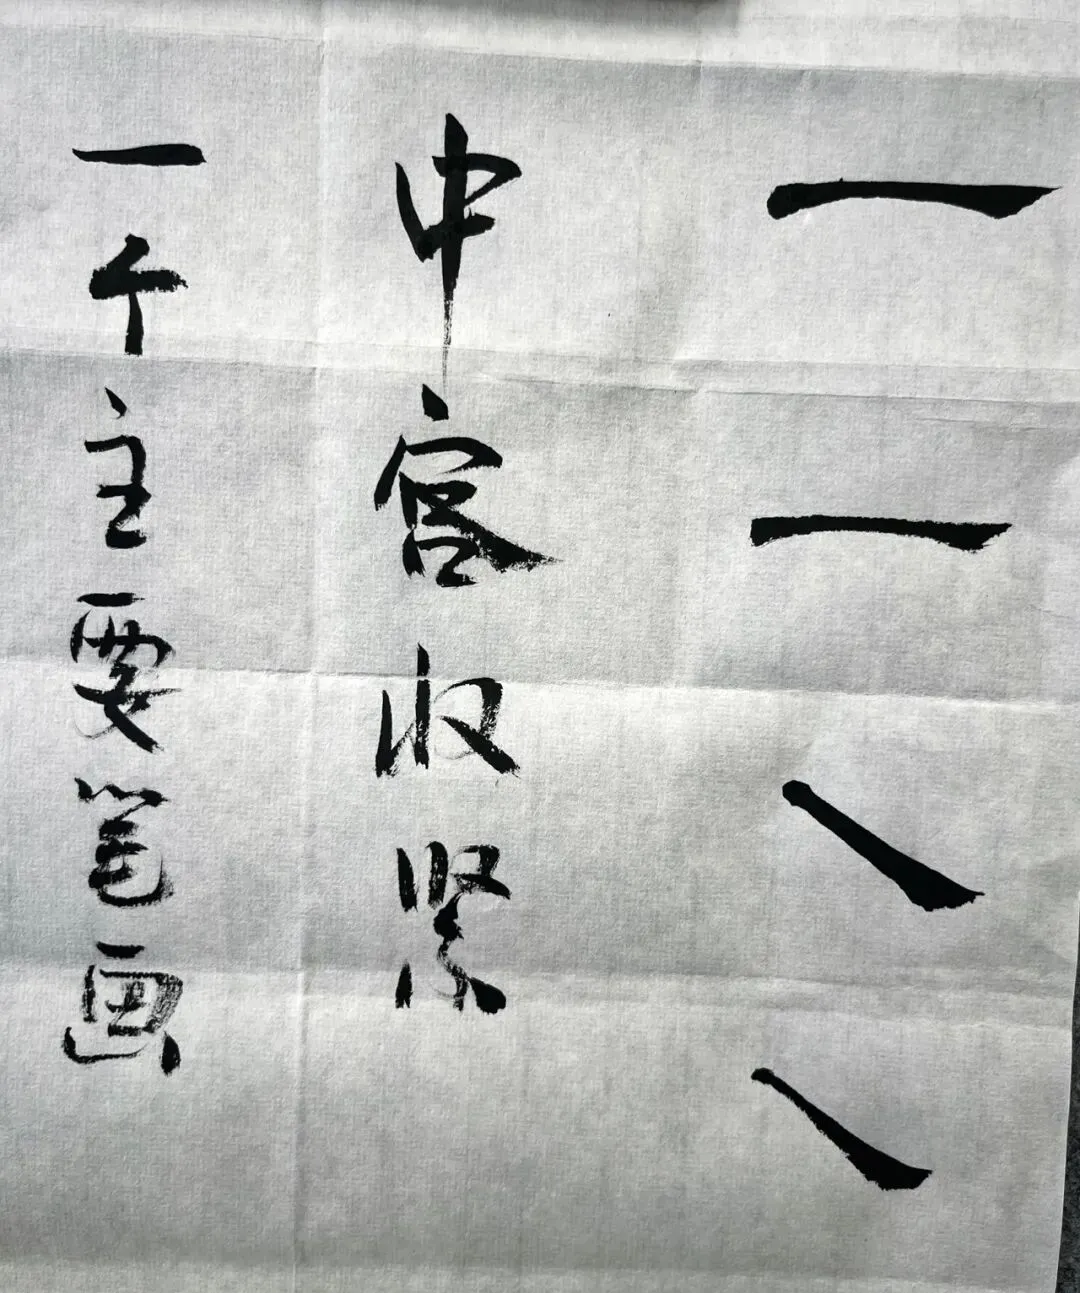 中宫收紧
一个主要笔画